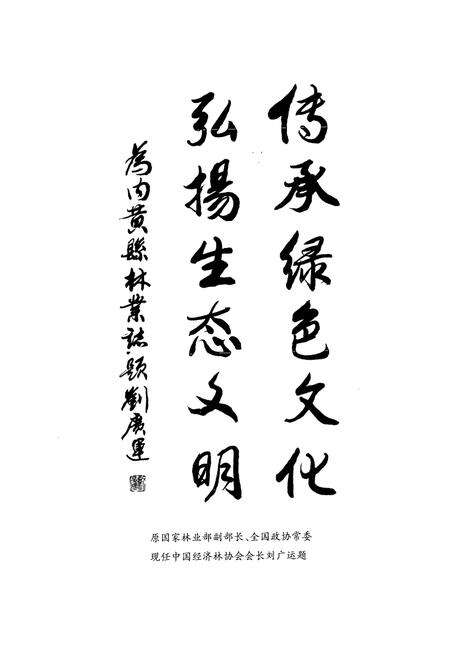 传承绿色文化
弘揚生态文明
為内黄縣林業誌題劉广運
原国家林业部副部长、全国政协常委
现任中国经济林协会会长刘广运题